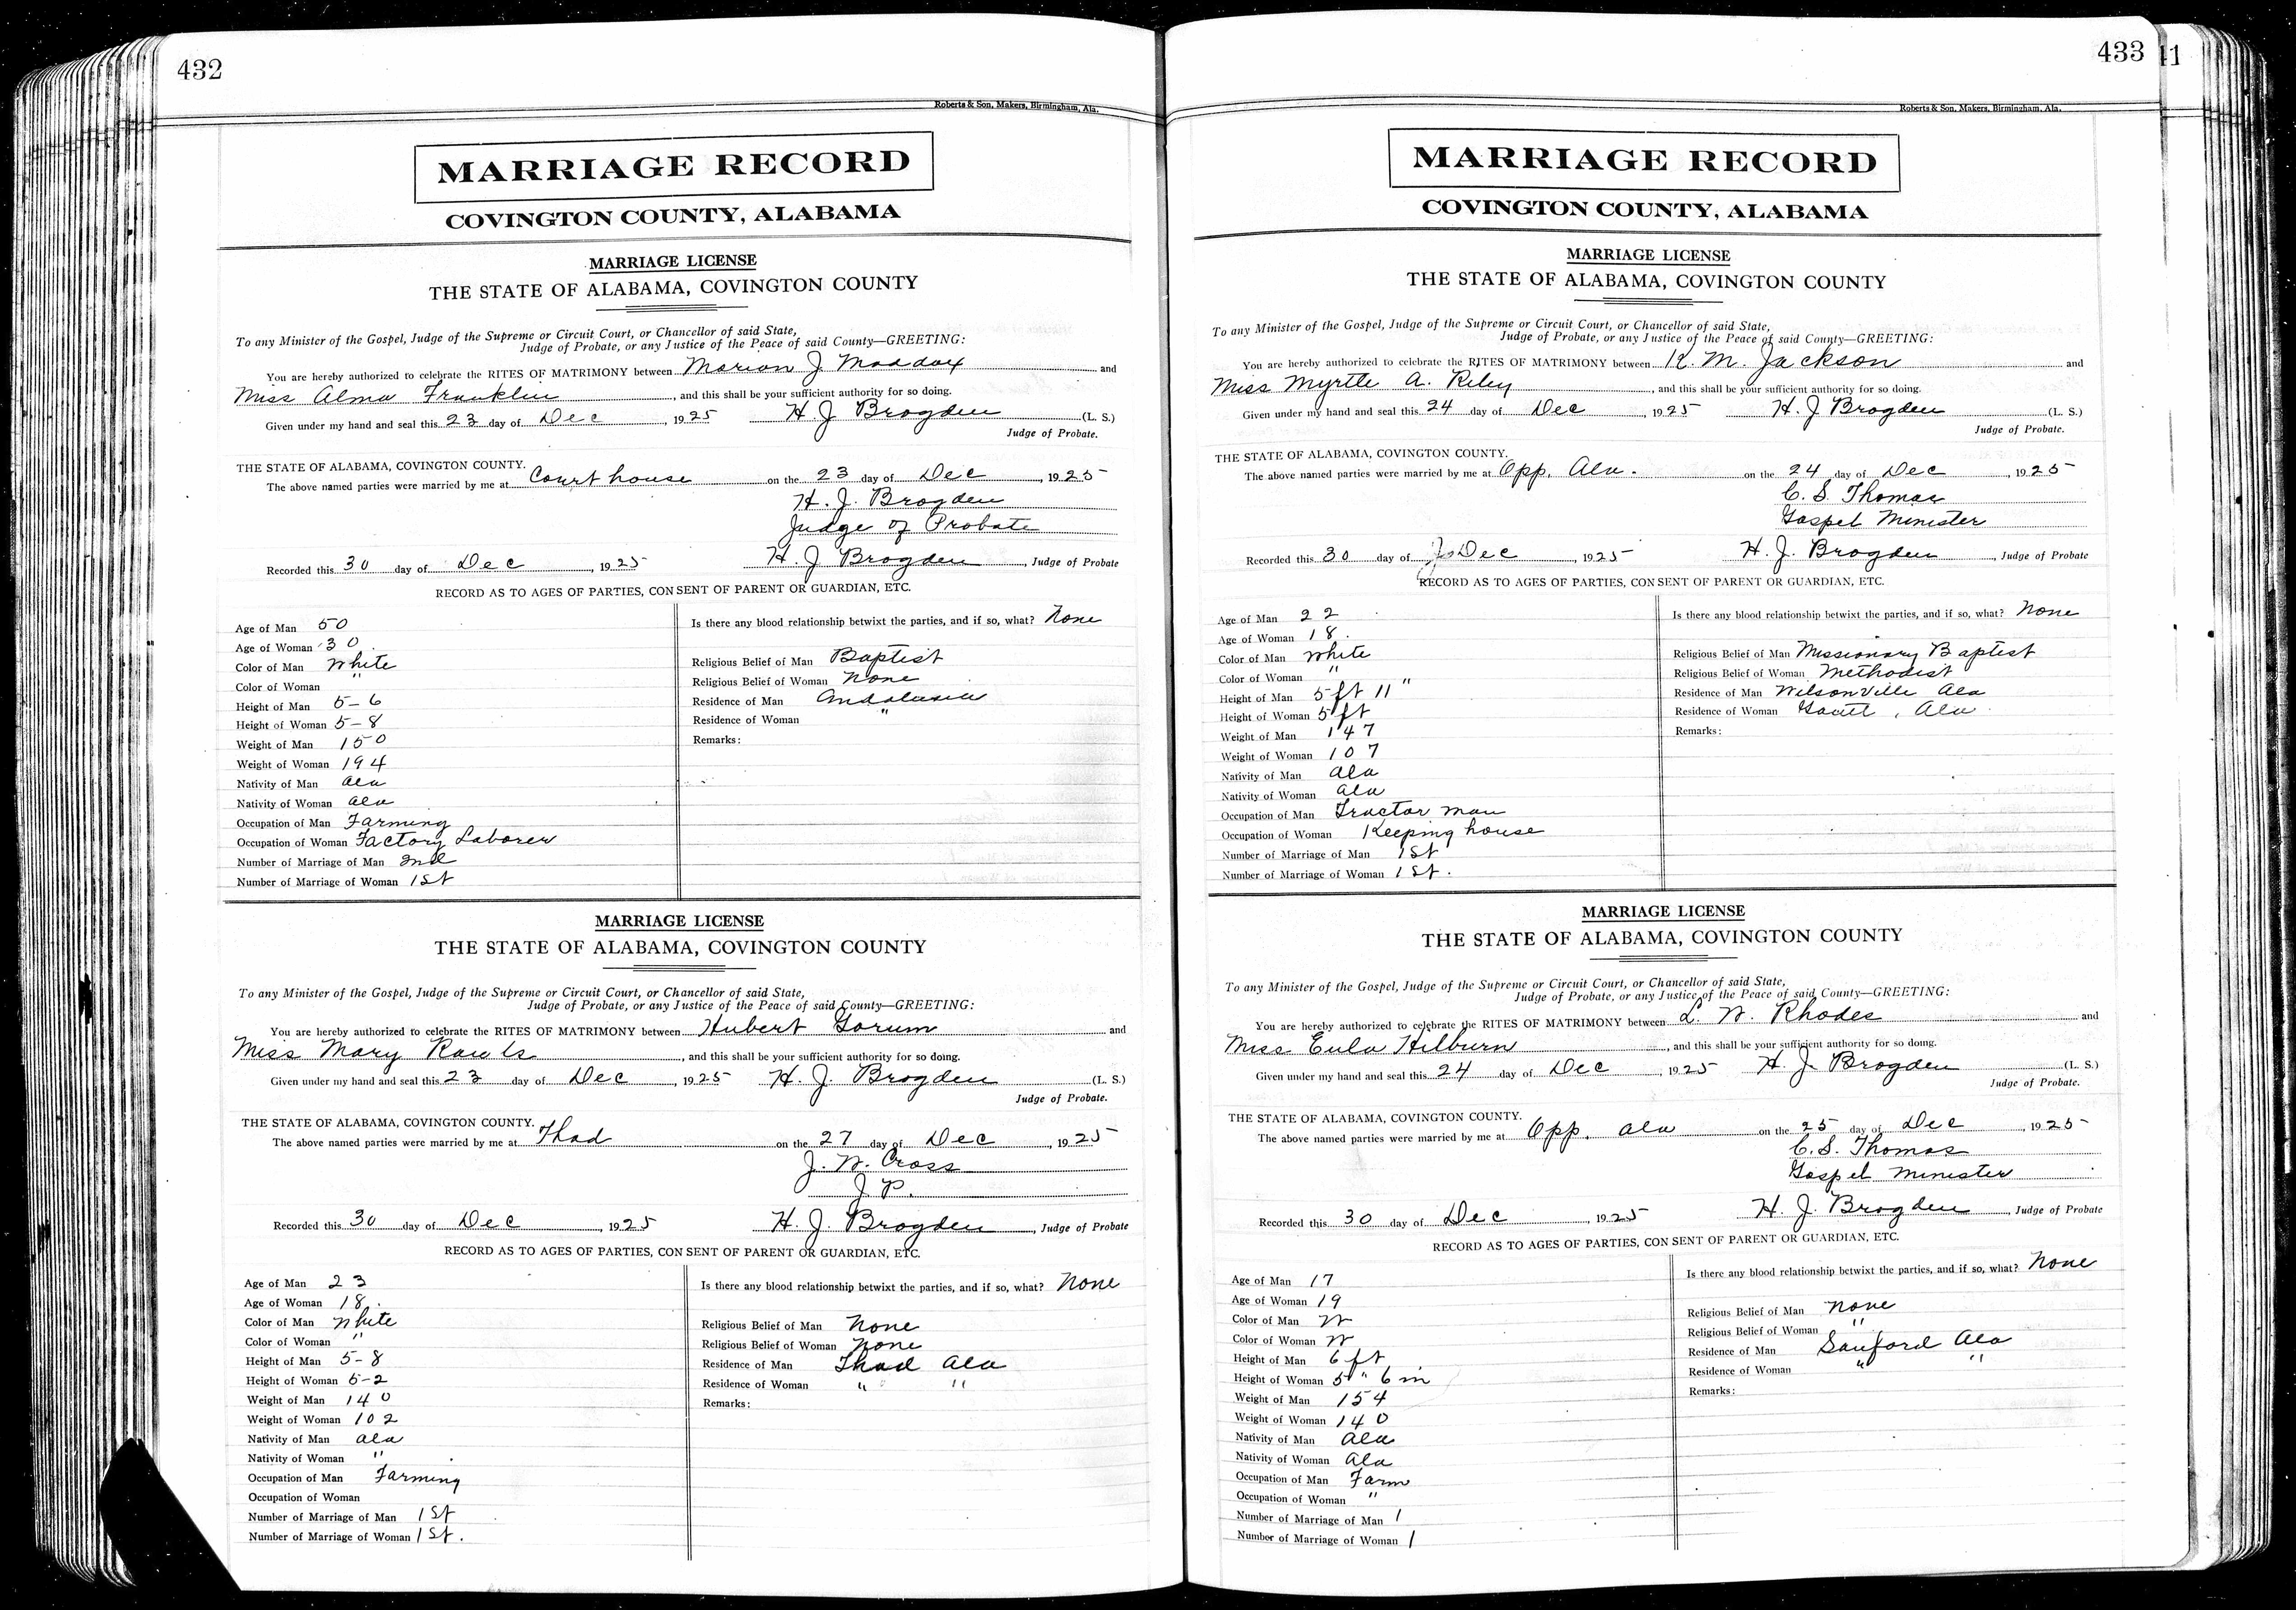 432
Roberts & Son, Makers, Birmingham, Ala.
MARRIAGE RECORD
COVINGTON COUNTY, ALABAMA
MARRIAGE LICENSE
THE STATE OF ALABAMA, COVINGTON COUNTY
To any Minister of the Gospel, Judge of the Supreme or Circuit Court, or Chancellor of said State,
Judge of Probate, or any Justice of the Peace of said County—GREETING:
You are hereby authorized to celebrate the RITES OF MATRIMONY between Marion J Maddox and
Miss Alma Franklin, and this shall be your sufficient authority for so doing.
Given under my hand and seal this 23 day of Dec, 1925 H. J Brogden (L. S.)
Judge of Probate.
THE STATE OF ALABAMA, COVINGTON COUNTY.
The above named parties were married by me at Court house on the 23 day of Dec, 1925
H. J. Brogden
Judge of Probate
Recorded this 30 day of Dec, 1925 H. J Brogden, Judge of Probate
RECORD AS TO AGES OF PARTIES, CONSENT OF PARENT OR GUARDIAN, ETC.
Age of Man 50
Age of Woman 30
Color of Man White
Color of Woman "
Height of Man 5-6
Height of Woman 5-8
Weight of Man 150
Weight of Woman 194
Nativity of Man Ala
Nativity of Woman Ala
Occupation of Man Farming
Occupation of Woman Factory Laborer
Number of Marriage of Man 2nd
Number of Marriage of Woman 1st
Is there any blood relationship betwixt the parties, and if so, what? None
Religious Belief of Man Baptist
Religious Belief of Woman None
Residence of Man Andalusia
Residence of Woman "
Remarks:
MARRIAGE LICENSE
THE STATE OF ALABAMA, COVINGTON COUNTY
To any Minister of the Gospel, Judge of the Supreme or Circuit Court, or Chancellor of said State,
Judge of Probate, or any Justice of the Peace of said County—GREETING:
You are hereby authorized to celebrate the RITES OF MATRIMONY between Hubert Gorum and
Miss Mary Rawls, and this shall be your sufficient authority for so doing.
Given under my hand and seal this 23 day of Dec, 1925 H. J. Brogden (L. S.)
Judge of Probate.
THE STATE OF ALABAMA, COVINGTON COUNTY.
The above named parties were married by me at Thad on the 27 day of Dec, 1925
J. W. Cross
J P.
Recorded this 30 day of Dec, 1925 H. J. Brogden, Judge of Probate
RECORD AS TO AGES OF PARTIES, CONSENT OF PARENT OR GUARDIAN, ETC.
Age of Man 23
Age of Woman 18.
Color of Man White
Color of Woman "
Height of Man 5-8
Height of Woman 5-2
Weight of Man 140
Weight of Woman 102
Nativity of Man Ala
Nativity of Woman "
Occupation of Man Farming
Occupation of Woman
Number of Marriage of Man 1st
Number of Marriage of Woman 1st.
Is there any blood relationship betwixt the parties, and if so, what? None
Religious Belief of Man None
Religious Belief of Woman None
Residence of Man Thad Ala
Residence of Woman " "
Remarks:
433
41
Roberts & Son, Makers, Birmingham, Ala.
MARRIAGE RECORD
COVINGTON COUNTY, ALABAMA
MARRIAGE LICENSE
THE STATE OF ALABAMA, COVINGTON COUNTY
To any Minister of the Gospel, Judge of the Supreme or Circuit Court, or Chancellor of said State,
Judge of Probate, or any Justice of the Peace of said County—GREETING:
You are hereby authorized to celebrate the RITES OF MATRIMONY between K. M. Jackson and
Miss Myrtle A. Riley, and this shall be your sufficient authority for so doing.
Given under my hand and seal this 24 day of Dec, 1925 H. J Brogden (L. S.)
Judge of Probate.
THE STATE OF ALABAMA, COVINGTON COUNTY.
The above named parties were married by me at Opp, Ala. on the 24 day of Dec, 1925
C. S. Thomas
Gospel Minister
Recorded this 30 day of Dec, 1925 H. J. Brogden, Judge of Probate
RECORD AS TO AGES OF PARTIES, CONSENT OF PARENT OR GUARDIAN, ETC.
Age of Man 22
Age of Woman 18.
Color of Man White
Color of Woman "
Height of Man 5 ft 11"
Height of Woman 5 ft
Weight of Man 147
Weight of Woman 107
Nativity of Man Ala
Nativity of Woman Ala
Occupation of Man Tractor man
Occupation of Woman Keeping house
Number of Marriage of Man 1st
Number of Marriage of Woman 1st.
Is there any blood relationship betwixt the parties, and if so, what? None
Religious Belief of Man Missionary Baptist
Religious Belief of Woman Methodist
Residence of Man Wilsonville Ala
Residence of Woman Gantt, Ala
Remarks:
MARRIAGE LICENSE
THE STATE OF ALABAMA, COVINGTON COUNTY
To any Minister of the Gospel, Judge of the Supreme or Circuit Court, or Chancellor of said State,
Judge of Probate, or any Justice of the Peace of said County—GREETING:
You are hereby authorized to celebrate the RITES OF MATRIMONY between L. W. Rhodes and
Miss Eula Hilburn, and this shall be your sufficient authority for so doing.
Given under my hand and seal this 24 day of Dec, 1925 H. J Brogden (L. S.)
Judge of Probate.
THE STATE OF ALABAMA, COVINGTON COUNTY.
The above named parties were married by me at Opp, Ala on the 25 day of Dec, 1925
C. S. Thomas
Gospel Minister
Recorded this 30 day of Dec, 1925 H. J. Brogden, Judge of Probate
RECORD AS TO AGES OF PARTIES, CONSENT OF PARENT OR GUARDIAN, ETC.
Age of Man 17
Age of Woman 19
Color of Man W
Color of Woman W
Height of Man 6 ft
Height of Woman 5 " 6 in
Weight of Man 154
Weight of Woman 140
Nativity of Man Ala
Nativity of Woman Ala
Occupation of Man Farm
Occupation of Woman "
Number of Marriage of Man 1
Number of Marriage of Woman 1
Is there any blood relationship betwixt the parties, and if so, what? None
Religious Belief of Man None
Religious Belief of Woman "
Residence of Man Sanford Ala
Residence of Woman " "
Remarks: